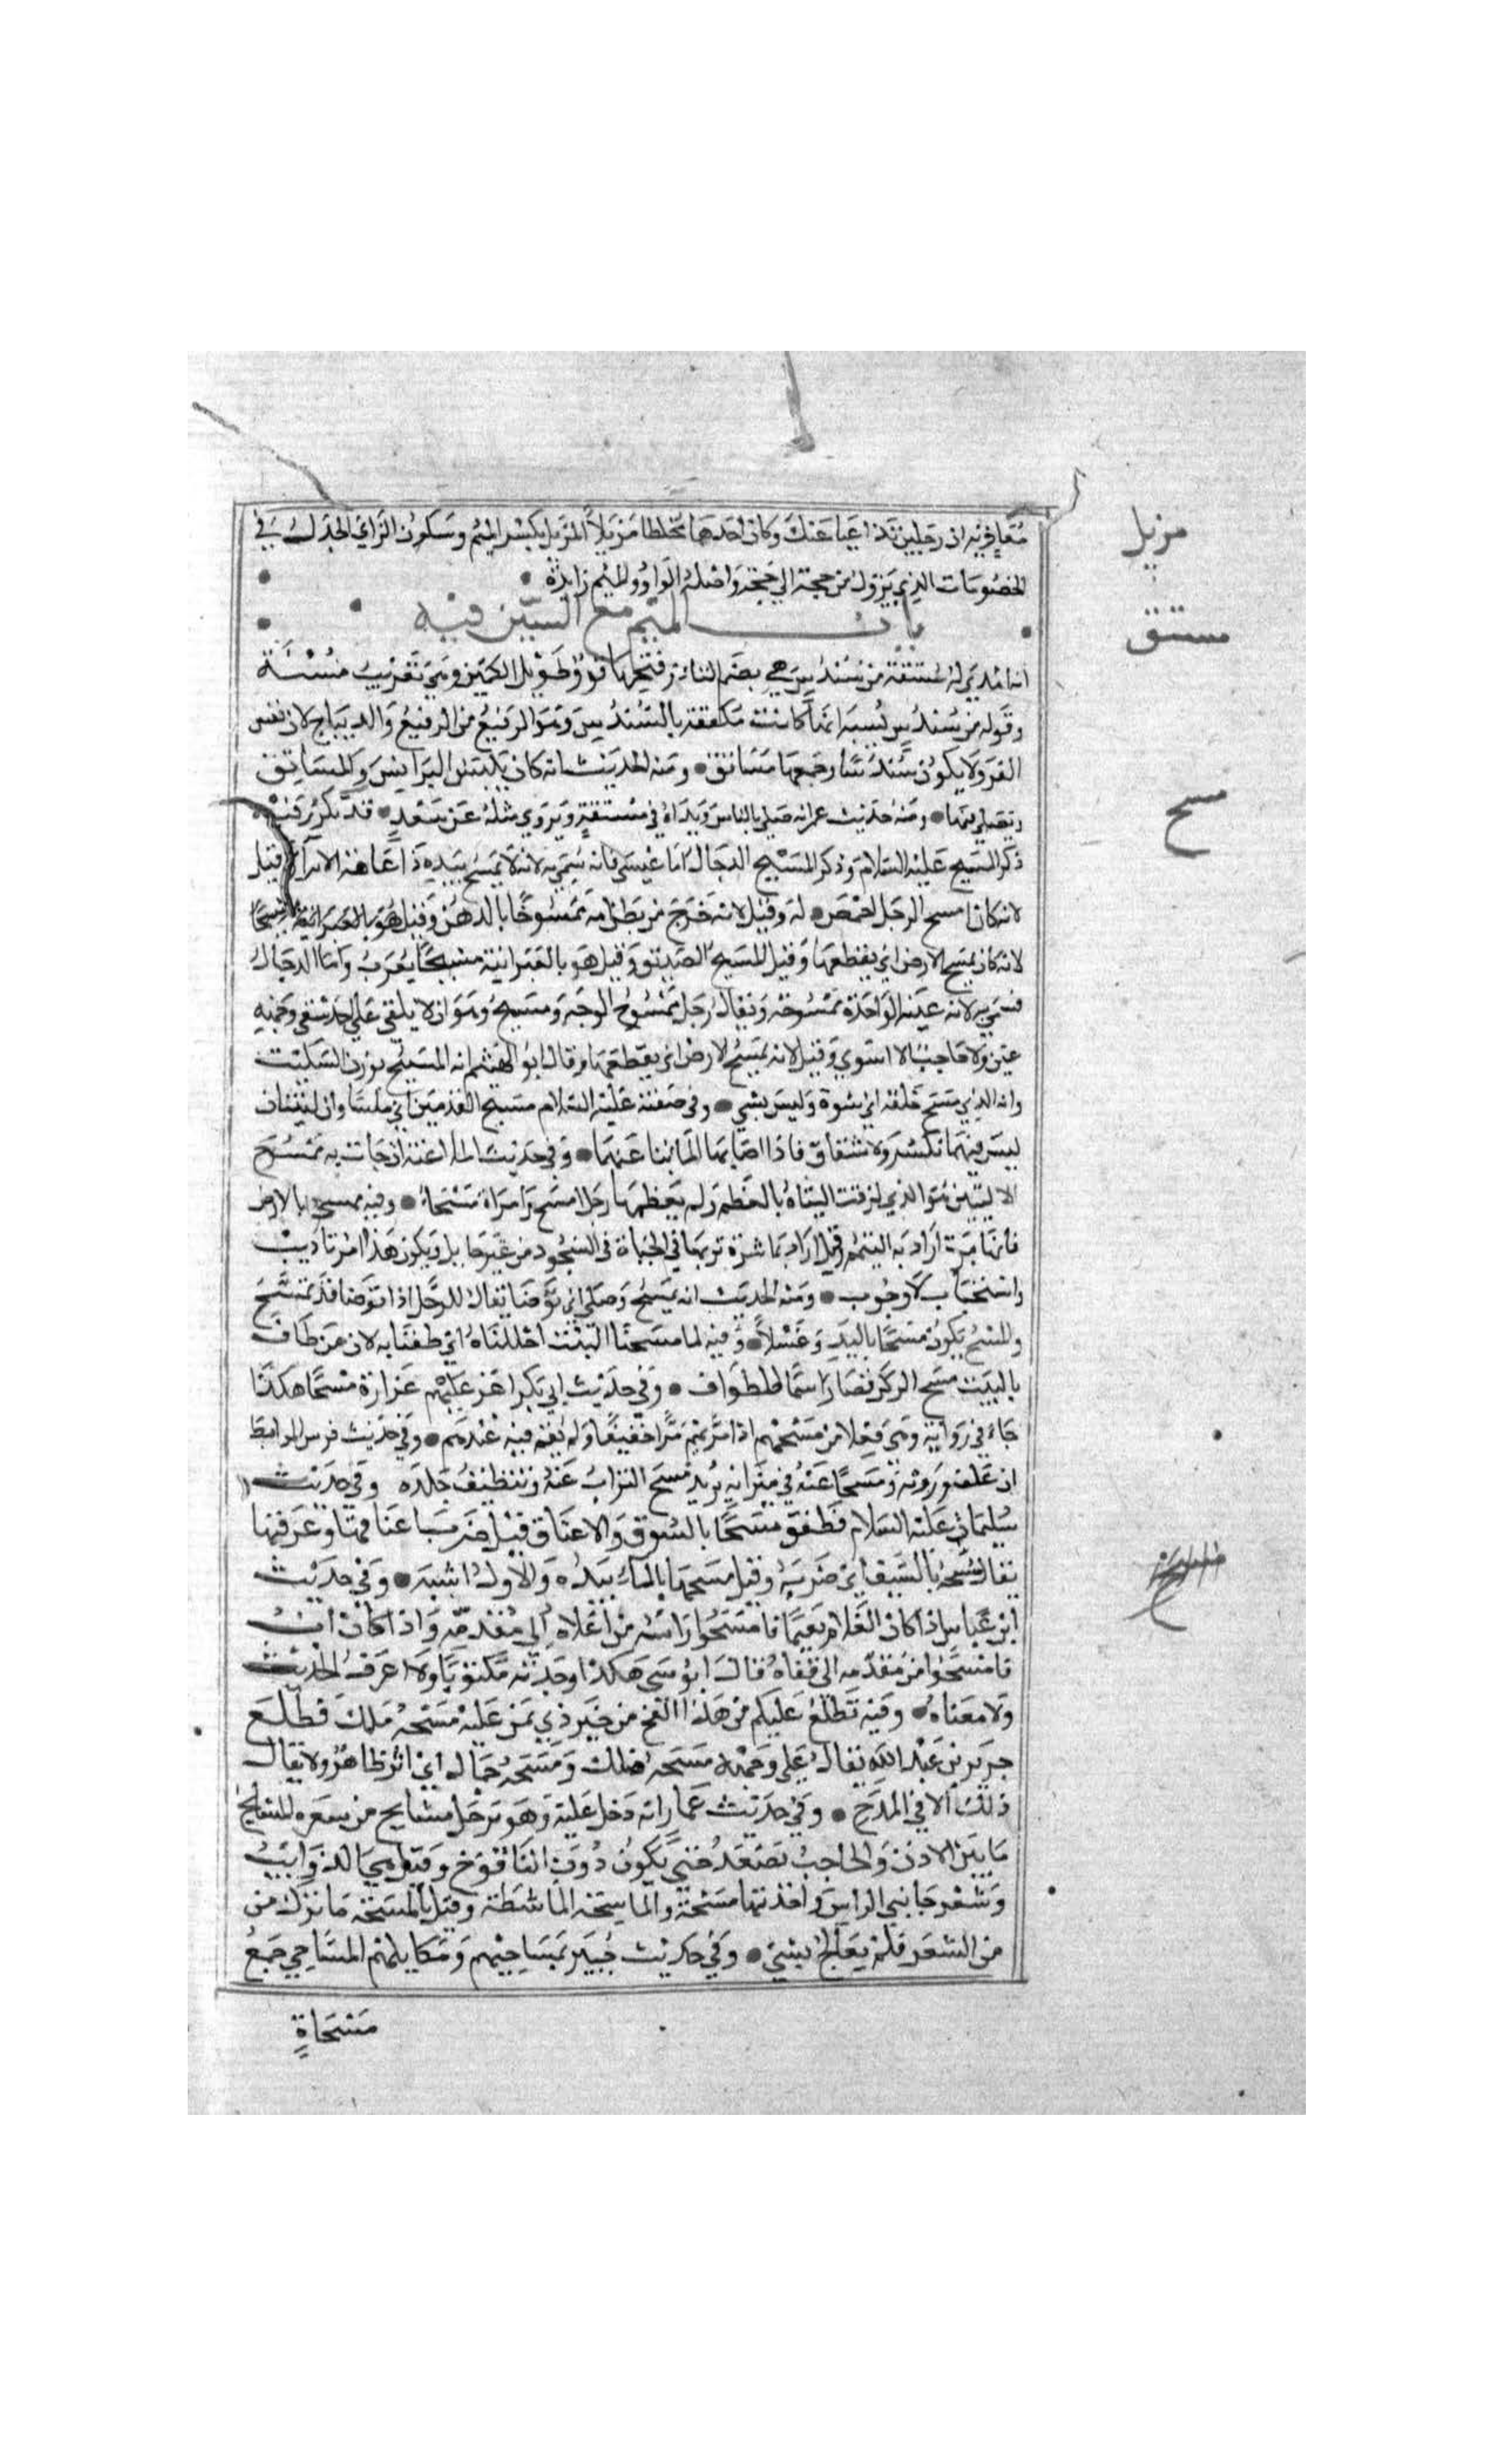 مزيل
مستق
مسح
معاوية ان رجلين تداعيا عنك وكان احدهما مخلطا مزيلا المزيل بكسر الميم وسكون الزاي الجدل في
الخصومات الذي يزول من حجة الي حجة واصله الواو والميم زايدة
باب الميم مع السين فيه
انه اهدي له مستقة من سندس هي بضم التاء وفتحها فرو طويل الكمين وهي تعريب مشتة
وقوله من سندس يشبه انها كانت مكففة بالسندس وهو الرفيع من الرفيع والديباج لان نفس
الفرو لا يكون سندسا وجمعها مساتق ومنه الحديث انه كان يلبس البرانس والمساتق
ويصلي فيها ومنه حديث عمر انه صلي بالناس ويداه في مستقة ويروي مثله عن سعد قد تكرر فيه
ذكر المسيح عليه السلام وذكر المسيح الدجال اما عيسي فانه سمي به لانه لا يمسح بيده ذا عاهة الا برأ وقيل
لانه كان امسح الرجل اخمص له وقيل لانه خرج من بطن امه ممسوحا بالدهن وقيل هو بالعبرانية
لانه كان يمسح الارض اي يقطعها وقيل المسيح الصديق وقيل هو بالعبرانية مشيحا يعرب واما الدجال
فسمي به لانه عينه الواحدة ممسوحة ويقال رجل ممسوح الوجه ومسيح وهو ان لا يبقي علي احد شقي وجهه
عين ولا حاجب الا استوي وقيل لانه يمسح الارض اي يقطعها وقال ابو الهيثم انه المسيح بوزن السكيت
وانه الذي مسح خلقه اي شوه وليس بشي وفي صفته عليه السلام مسيح القدمين اي ملسا وان لينتان
ليس فيهما تكسر ولا شقاق فاذا اصابهما الما نبا عنهما وفي حديث الملاعنة ان جات به ممسوح
الاليتين هو الذي لزقت اليتاه بالعظم ولم يعظمها رجل امسح وامراة مسحاء وفيه تمسحوا بالارض
فانها برة اراد به التيمم وقيل اراد مباشرة تربها في الجباه في السجود من غير حايل ويكون هذا امر تاديب
واستحباب لا وجوب ومنه الحديث انه تمسح وصلي اي توضا يقال للرجل اذا توضا قد تمسح
والمسح يكون مسحا باليد وغسلا وفيه لما مسحنا البيت احللناه اي طفنا به لان من طاف
بالبيت مسح الركن فصار اسما للطواف وفي حديث ابي بكر اغر عليهم غارة مسحا هكذا
جاء في رواية وهي فعلا من مسحهم اذا مر بهم مرا خفيفا ولم يقم فيه عندهم وفي حديث فرس المرابط
ان علفه وروثه ومسحا عنه في ميزانه يريد مسح التراب عنه وتنظيف جلده وفي حديث
سليمان عليه السلام فطفق مسحا بالسوق والاعناق قيل ضرب اعناقها وعرقبها
يقال مسحه بالسيف اي ضربه وقيل مسحها بالماء بيده والاول اشبه وفي حديث
ابن عباس اذا كان الغلام يتيما فامسحوا راسه من اعلاه الي مقدمه واذا كان اب
فامسحوا من مقدمه الي قفاه قال ابو موسي هكذا وجدته مكتوبا ولا اعرف الحديث
ولا معناه وفيه تطلع عليكم من هذا الفج من خير ذي يمن عليه مسحة ملك فطلع
جرير بن عبد الله يقال علي وجهه مسحة ملك ومسحة جمال اي اثر ظاهر ولا يقال
ذلك الا في المدح وفي حديث عمار انه دخل عليه وهو يرجل مسايح من شعره المسايح
ما بين الاذن والحاجب تصعد حتي يكون دون اليافوخ وقيل هي الذوايب
وشعر جانبي الراس واحدتها مسيحة والماسحة الماشطة وقيل المسيحة ما ترك من
من الشعر فلم يعالج بشي وفي حديث خيبر بمساحيهم ومكايلهم المساحي جمع
مسحاة